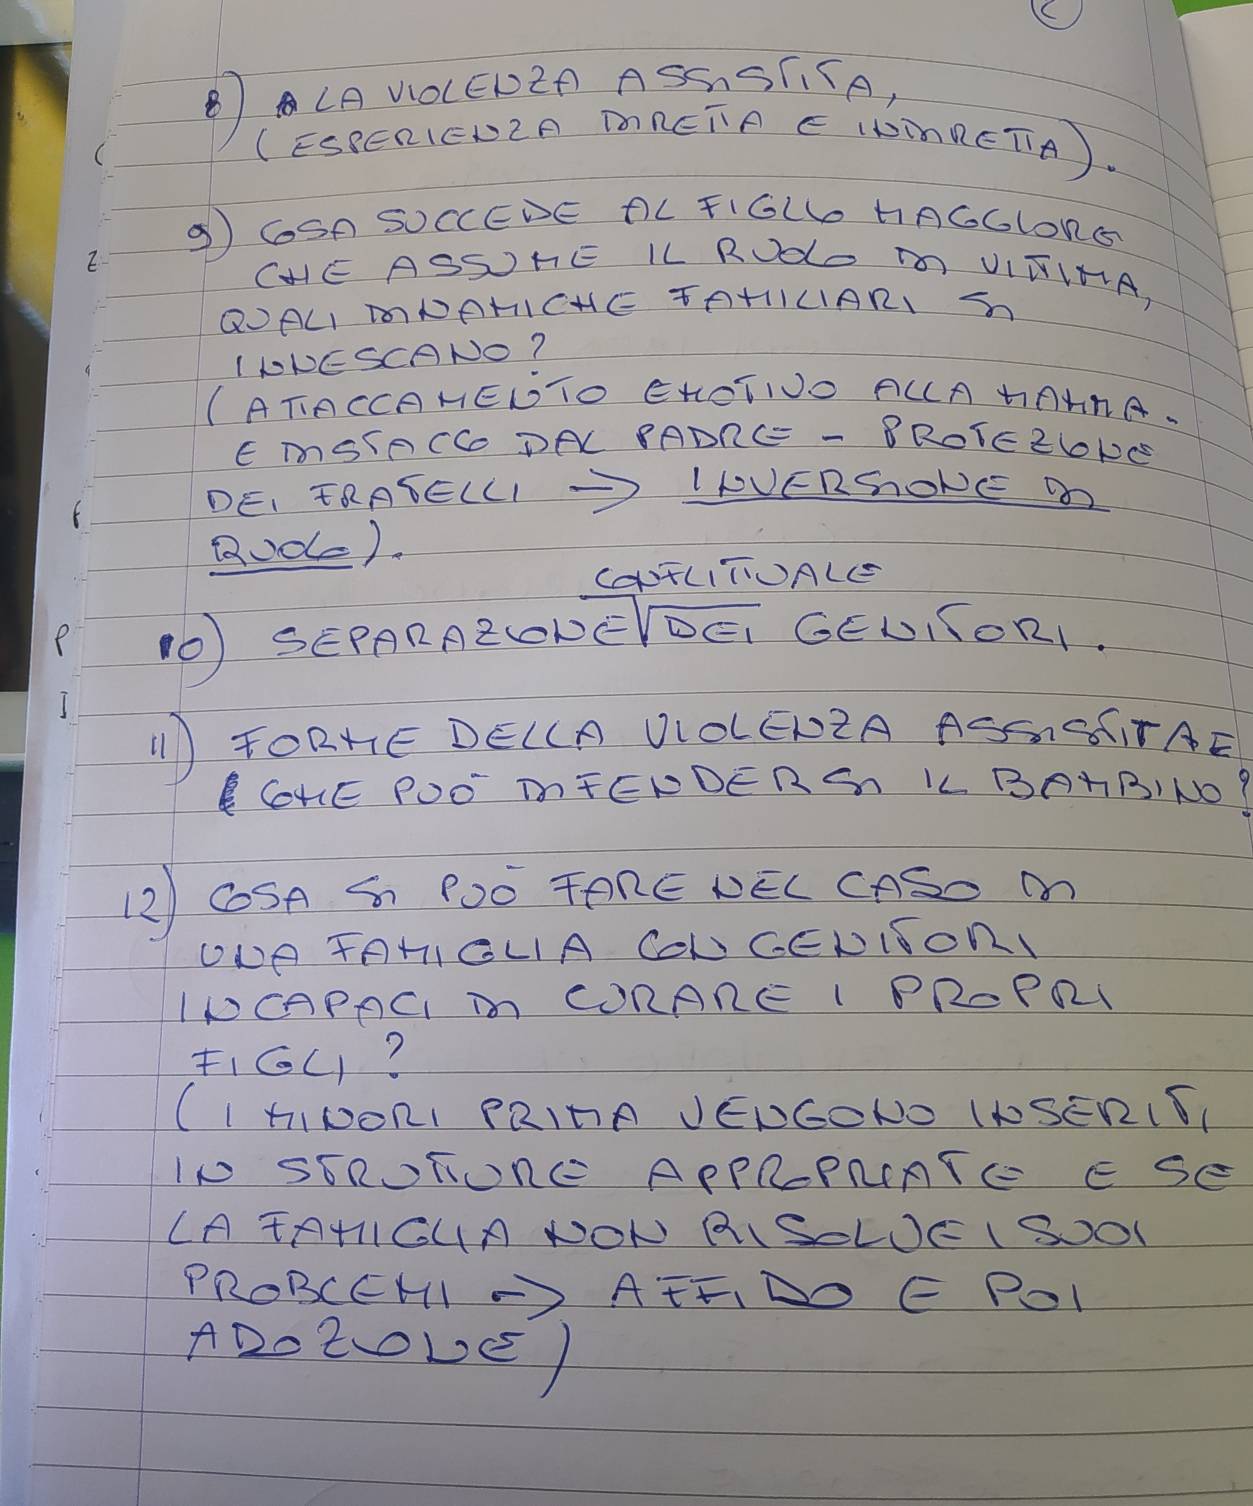 2
8) LA VIOLENZA ASSISTITA,
(ESPERIENZA DIRETTA E INDIRETTA).
9) COSA SUCCEDE AL FIGLIO MAGGIORE
CHE ASSUME IL RUOLO DI VITTIMA,
QUALI DINAMICHE FAMILIARI SI
INNESCANO?
(ATTACCAMENTO EMOTIVO ALLA MAMMA.
E DISTACCO DAL PADRE - PROTEZIONE
DEI FRATELLI → INVERSIONE DI
RUOLO).
CONFLITTUALE
10) SEPARAZIONE DEI GENITORI.
11) FORME DELLA VIOLENZA ASSISTITA E
COME PUÒ DIFENDERSI IL BAMBINO?
12) COSA SI PUÒ FARE NEL CASO DI
UNA FAMIGLIA CON GENITORI
INCAPACI DI CURARE I PROPRI
FIGLI?
(I MINORI PRIMA VENGONO INSERITI
IN STRUTTURE APPROPRIATE E SE
LA FAMIGLIA NON RISOLVE I SUOI
PROBLEMI → AFFIDO E POI
ADOZIONE)